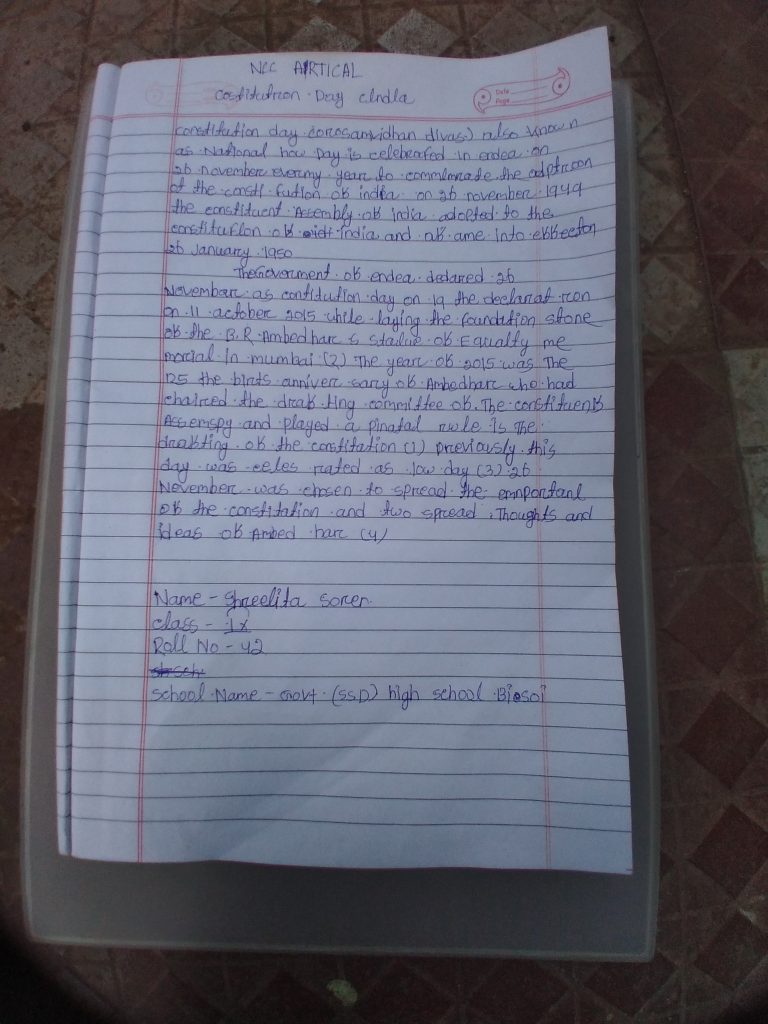 NCC ARTICAL
Costitution Day cIndia
Date
Page
constitution day corosamvidhan divas) also known
as National how Day is celebrated in endea on
26 november evermy year to commimorate the adptricon
of the consti tution ob india on 26 november 1949
the constituent Assembly ob india adopted to the
constitution ob india and ob ame into ebbecton
26 January 1950
The Goverment ob endea declared 26
Novembarc as contitution day on 19 the declarat icon
on 11 actober 2015 while laying the foundation stone
ob the B.R. Ambedharc s statue ob Equalty me
morcial in mumbai (2) The yearc ob 2015 was The
125 the birats anniverc sarcy ob Ambedharc who had
chairced the drcab ting committee ob The constituents
Assemspy and played a pinatal rwle is the
drcabting ob the constitation (1) prceviously this
day was eeles rated as low day (3) 26
Novemberc was chosen to spread the emnportant
ob the constitation and two spread Thoughts and
ideas ob Ambed harc (4)
Name - Shreelita soren
class - IX
Roll No - 42
school Name - Govt (SSD) high school Bisoi